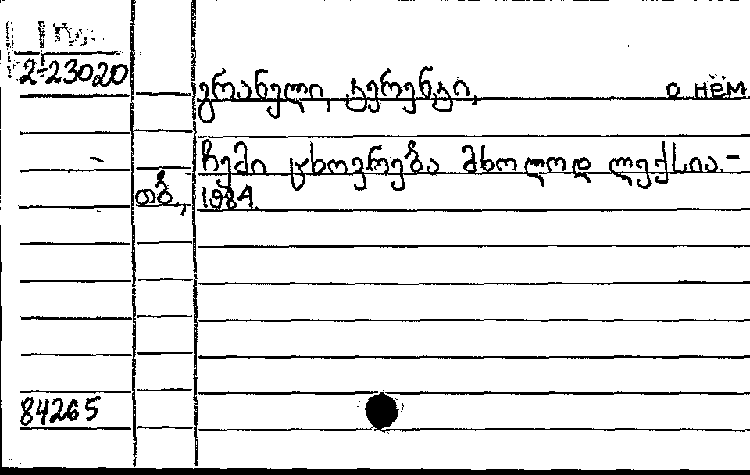 2-23020
გრანელი, ტერენტი, о нём
ჩემი ცხოვრება მხოლოდ ლექსია.-
თბ., 1984.
84265